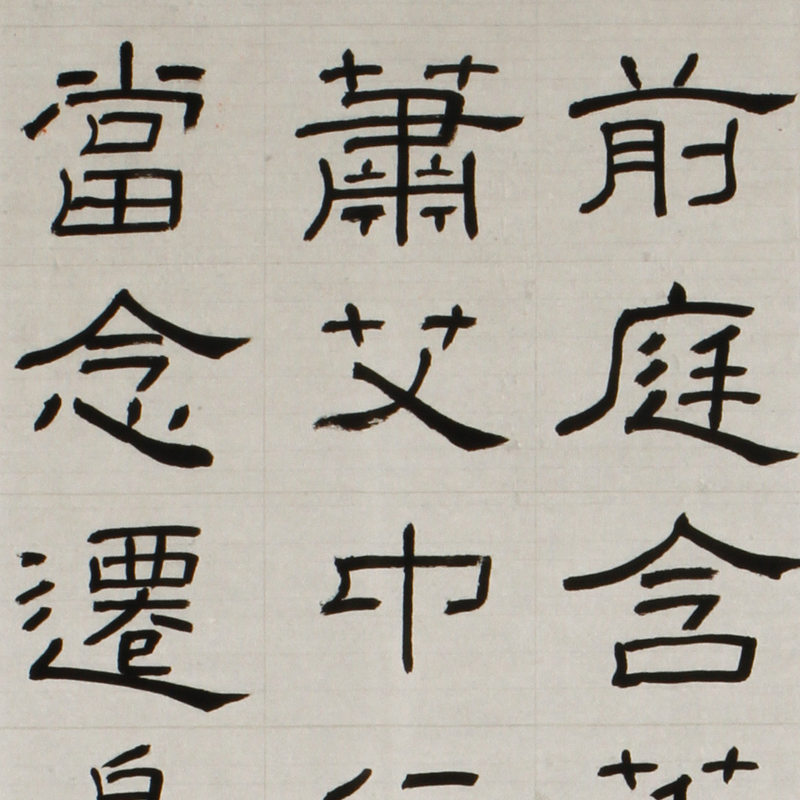 前庭含
蕭艾中
當念遷